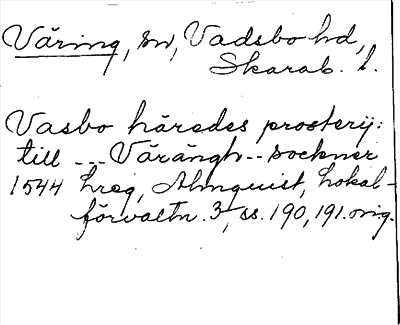 Väring, sn, Vadsbo hd,
Skarab. l.
Vasbo häredes prosterij:
till --- Värängh -- sockner
1544 hreg, Almquist, Lokal-
förvaltn. 3, ss. 190, 191. orig.